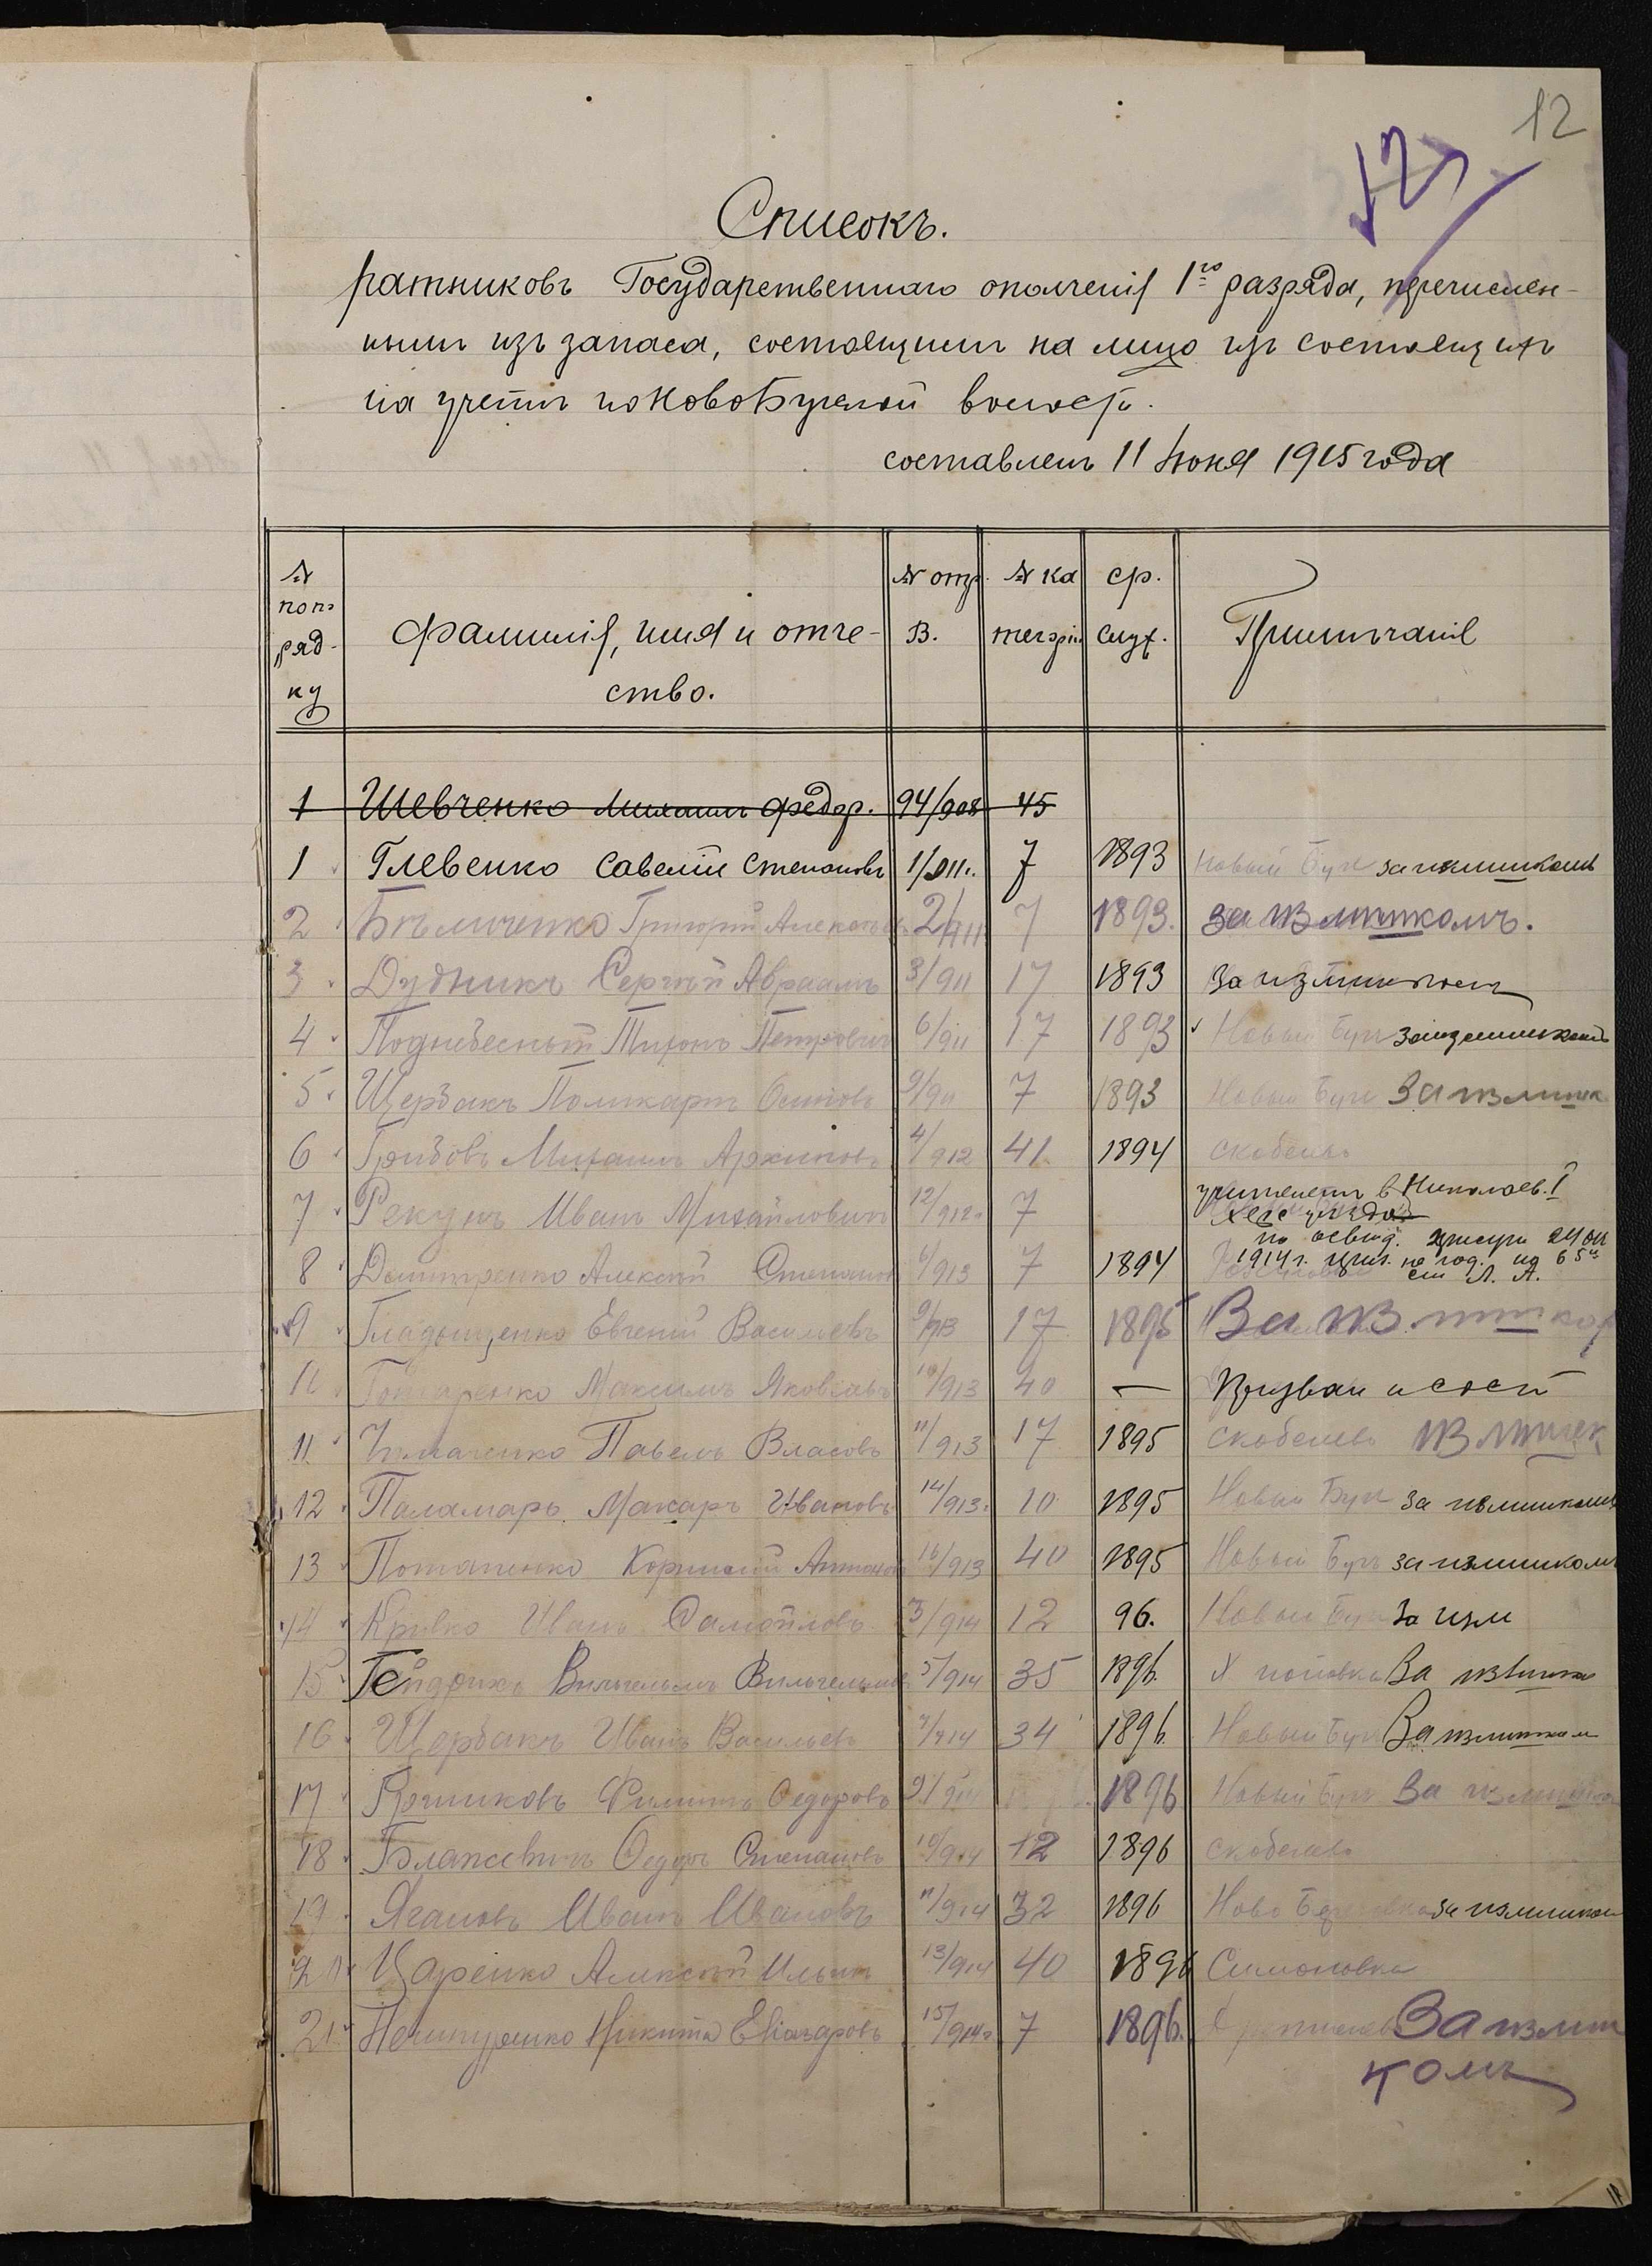 12
12
Списокъ.
ратниковъ Государственнаго ополченія 1го разряда, перечислен-
ныхъ изъ запаса, состоящихъ на лицо изъ состоящихъ
на учетѣ по НовоБугской волости.
составленъ 11 Іюня 1915 года
№ попо- ряд- ку Фамилія, имя и отче- ство. № отр. В. № ка тегоріи ср. служ. Примѣчаніе
1 Шевченко Михаилъ Федор. 94/908 45
1 Глевенко Савелій Степановъ 1/911. 7 1893 Новый Бугъ за излишкомъ
2 Бѣличенко Григорій 2/911 7 1893. За излишкомъ.
3 Дудникъ Сергѣй Абрамовъ 3/911 17 1893 За излишком
4 Поднебесный Тихонъ Петровичъ 6/911 17 1893 Новый Бугъ за излишкомъ
5 Щербакъ Поликарпъ Осиповъ 9/911 7 1893 Новый Бугъ За излишк
6 Грибовъ Михаилъ Архиповъ 4/912 41 1894 Скобелево
7 Рекунъ Иванъ Михайловичъ 12/912. 7 учителемъ в Николаев. I
Херс уѣзда
8 Дмитренко Алексѣй Степанов 6/913 7 1894 по освид. 1914 г. приз. не год. по 65
ст Л. А.
9 Гладыщенко Евгений Васильевъ 9/913 17 1895 За излишком
10 Гончаренко Максимъ Яковлевъ 10/913 40 — Призван
11 Павелъ Власовъ 11/913 17 1895 Скобелево излишек
12 Паламаръ Макаръ Ивановъ 14/913. 10 1895 Новый Бугъ За излишкомъ
13 Потапенко Корнилій Антонов 16/913 40 1895 Новый Бугъ за излишкомъ
14 Кривко Иванъ Самойловъ 3/914 12 96. Новый Бугъ За изл
15 Гейдрихъ Вильгельмъ Вильгельмов 5/914 35 1896. За излишк
16 Щербакъ Иванъ Васильевъ 7/914 34 1896. Новый Бугъ За излишком
17 Филиппъ Федоровъ 9/914 1896 Новый Бугъ За излишко
18 Блажевичъ Федоръ Степановъ 10/914 12 1896 Скобелево
19 Ягановъ Иванъ Ивановъ 11/914 32 1896 за излишком
20 Царенко Алексѣй Ильинъ 13/914 40 1896 Симоновка
21 Никита Еліазаровъ 15/914. 7 1896. За излиш
комъ